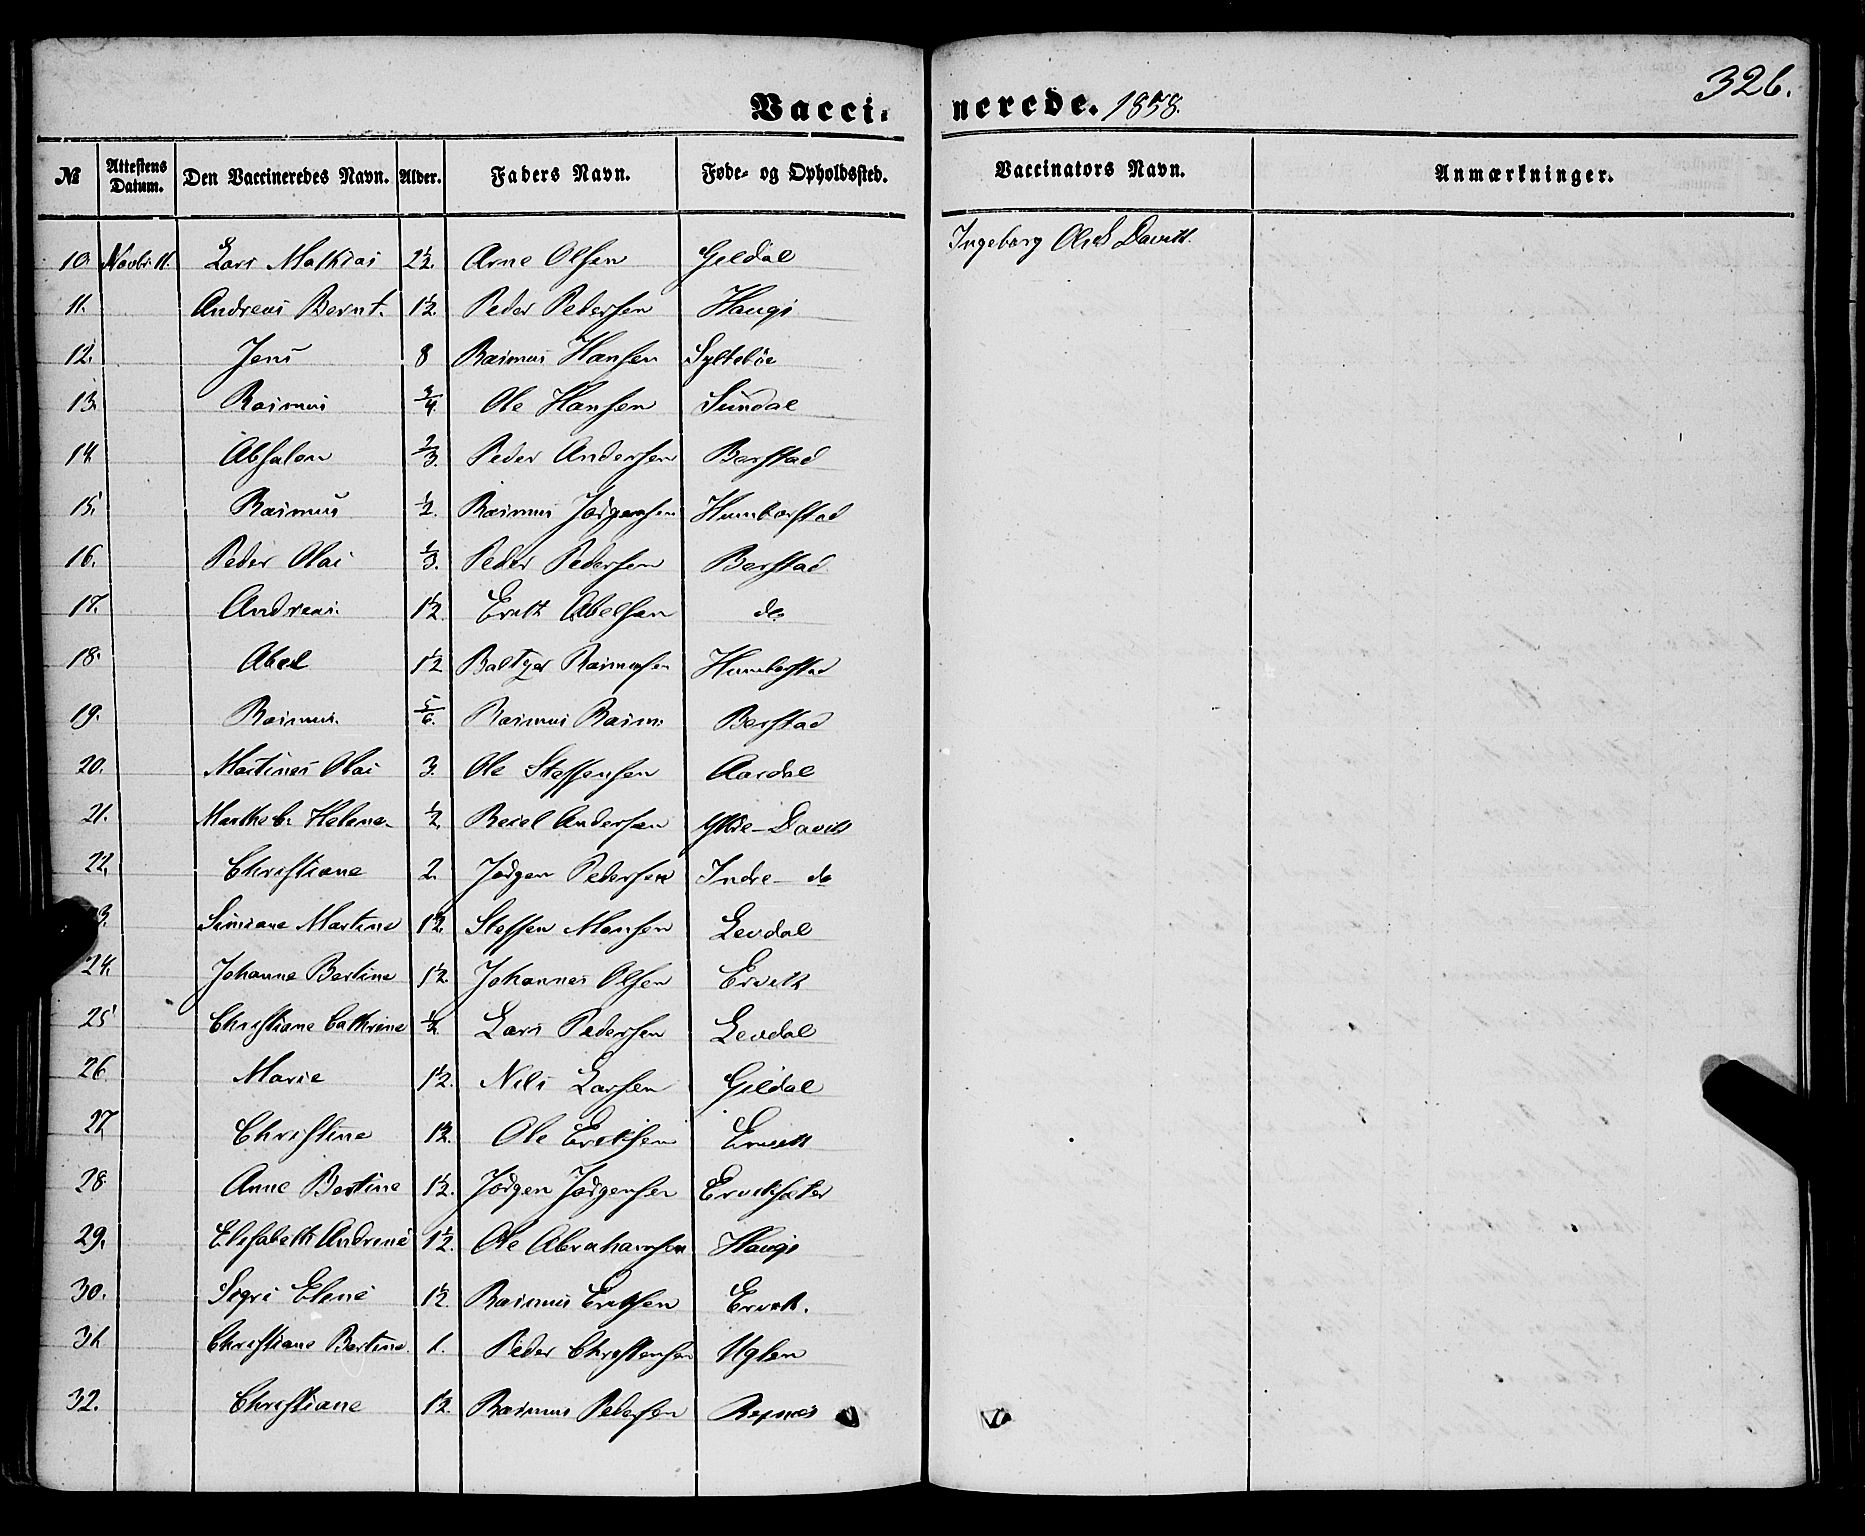 326.
Vacci- nerede. 1858.
№ Attestens Datum. Den Vaccineredes Navn. Alder. Faders Navn. Føde- og Opholdssted. Vaccinators Navn. Anmærkninger.
10. Novbr. 11. Lars Mathias 2½. Arne Olsen Geldal Ingeborg Olsd. Davik.
11. Andreas Bernt. 1½. Peder Pedersen Hauge
12. Jens 8 Rasmus Hansen Syltebøe
13. Rasmus ¾. Ole Hansen Sundal
14. Absalon ⅔. Peder Andersen Barstad
15. Rasmus ½. Rasmus Jørgensen Humborstad
16. Peder Olai ⅓. Peder Pedersen Barstad
17. Andreas. 1½. Erik Abelsen do
18. Abel 1½ Baltzer Rasmusen Humborstad
19. Rasmus. ⅚. Rasmus Rasm: Barstad
20. Martines Olai 3. Ole Steffensen Aardal
21. Marthe b. Helene. ½. Andersen Yttre-Davik
22. Christiane 2. Jørgen Pedersen Indre- do
3. Simiane Martine 1½. Steffen Monsen Levdal
24. Johanne Bertine 1½. Johannes Olsen Ervik
25 Christiane Cathrine ½. Lars Pedersen Levdal
26 Marie 1½. Nils Larsen Geldal
27 Christine 1½. Ole Eriksen Ervik
28 Anne Bertine 1½. Jørgen Jørgensen Erviksæter
29. Elisabeth Andrine 1½. Ole Abrahamsen Hauge
30. Sigri Eline 1½ Rasmus Eriksen Ervik.
31 Christiane Bertine. 1. Peder Christensen Uglen
32. Christiane 1½. Rasmus Pedersen Refnes